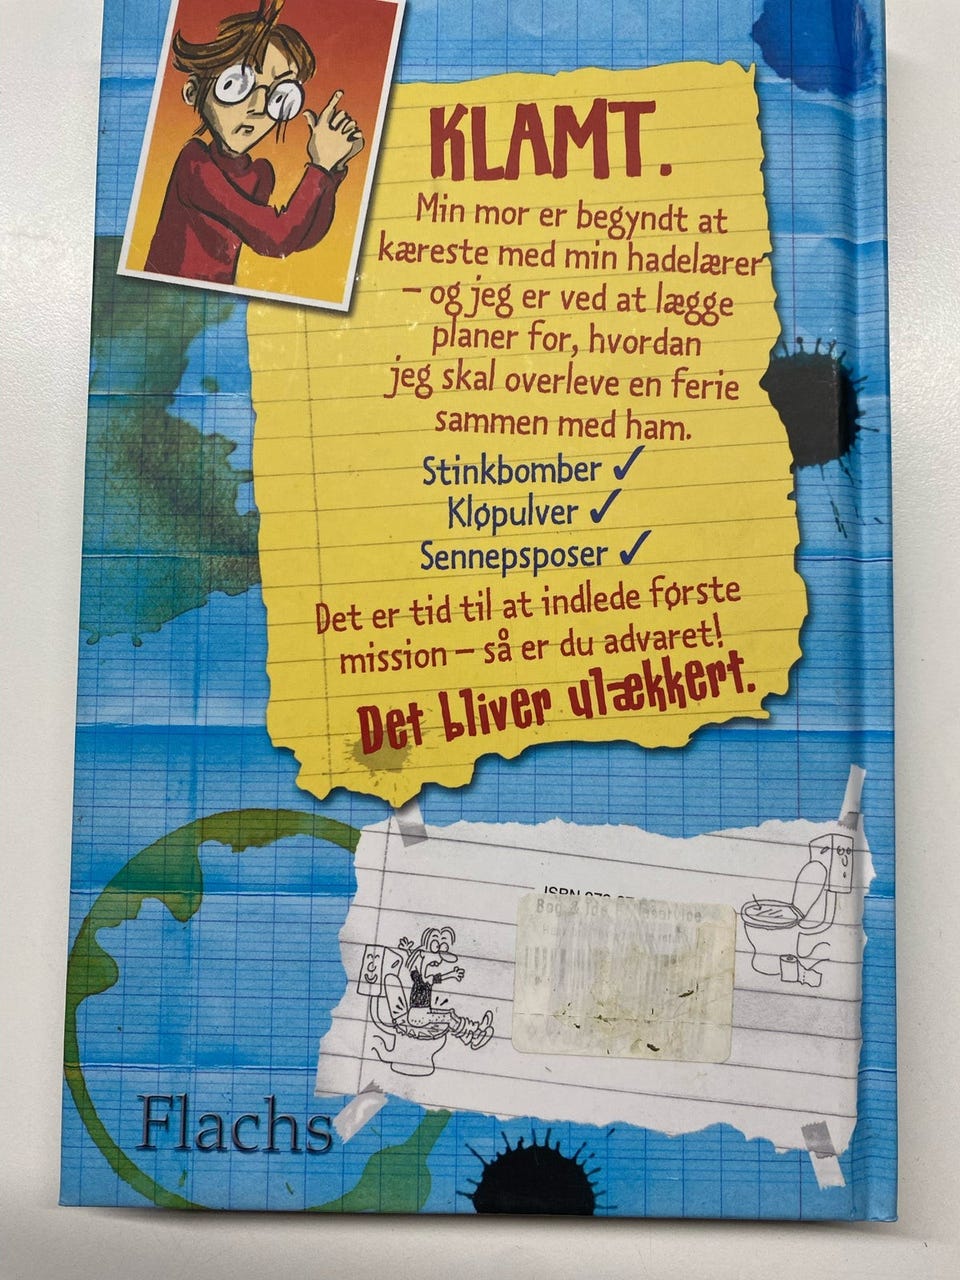 KLAMT.
Min mor er begyndt at
kæreste med min hadelærer
– og jeg er ved at lægge
planer for, hvordan
jeg skal overleve en ferie
sammen med ham.
Stinkbomber ✓
Kløpulver ✓
Sennepsposer ✓
Det er tid til at indlede første
mission – så er du advaret!
Det bliver ulækkert.
ISBN
Bog & Ide
Flachs